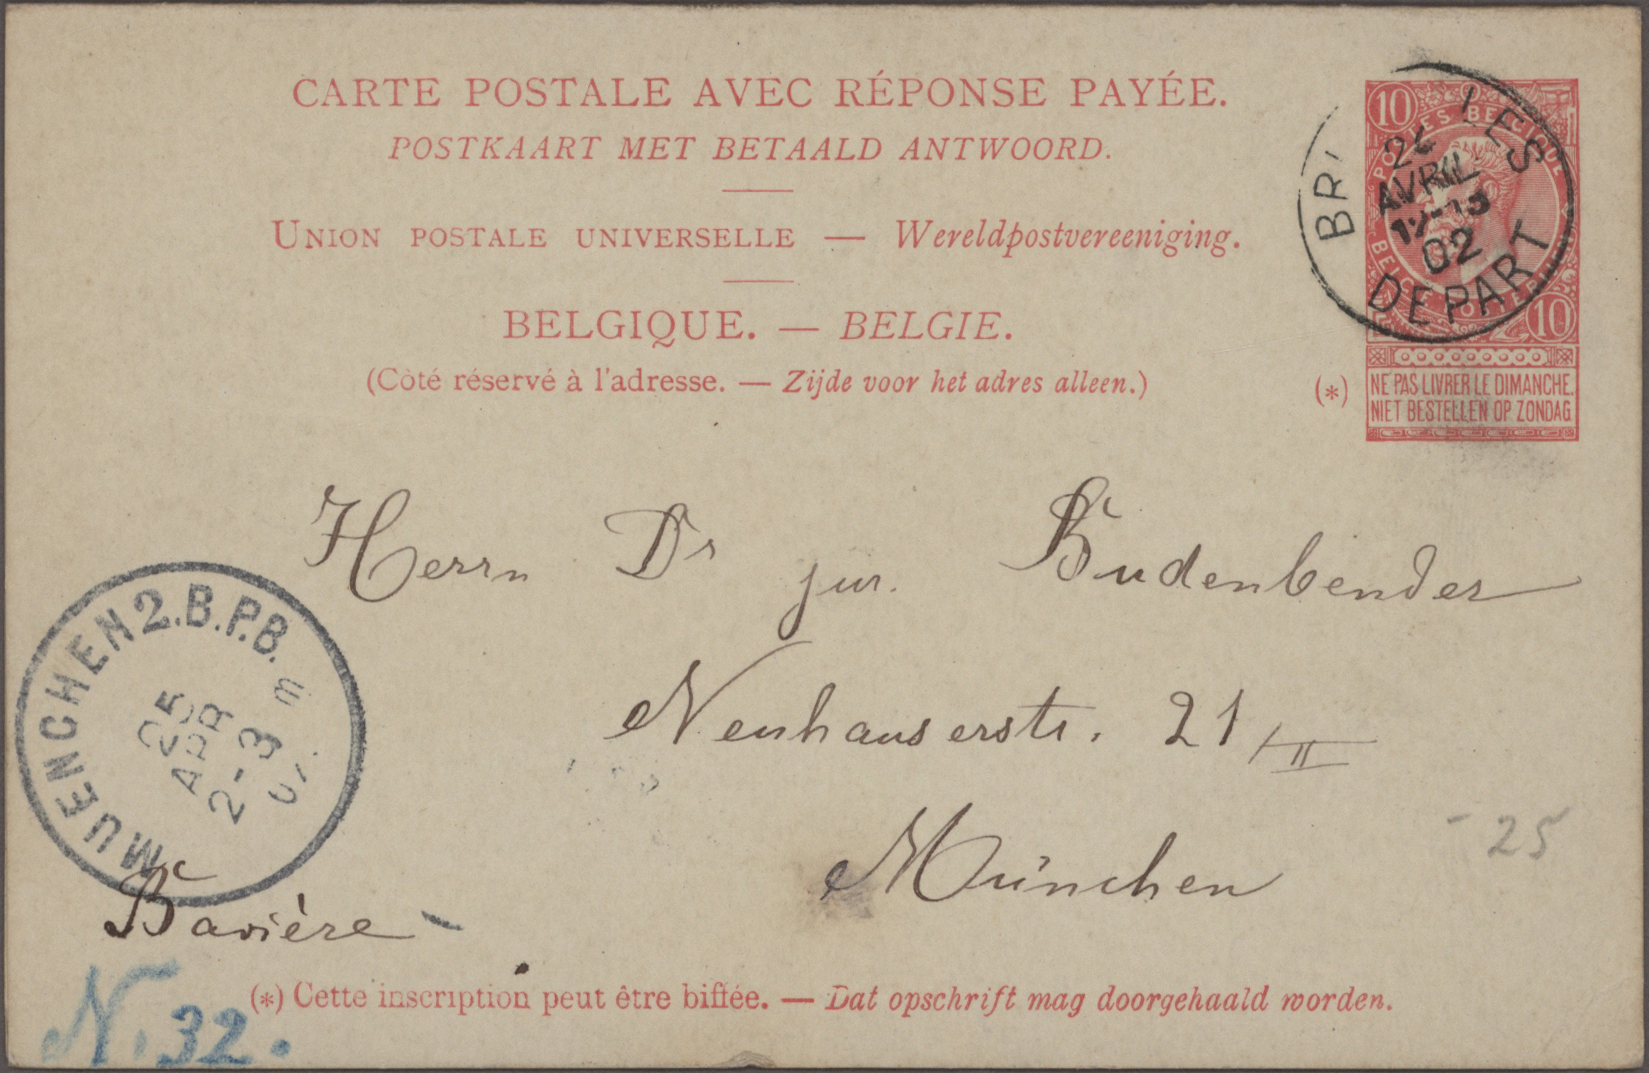 CARTE POSTALE AVEC RÉPONSE PAYÉE.
POSTKAART MET BETAALD ANTWOORD.
UNION POSTALE UNIVERSELLE — Wereldpostvereeniging.
BELGIQUE. — BELGIE.
(Côté réservé à l'adresse. — Zijde voor het adres alleen.)
10
POSTES BELGIQUE
BELGIË POSTERIJEN
10
(*)
NE PAS LIVRER LE DIMANCHE.
NIET BESTELLEN OP ZONDAG
AVRIL
02
DEPART
Herrn Dr jur. Büdenbender
Neuhauserstr. 21/II
München
- 25
MUENCHEN 2.B.P.B.
25
APR
2-3
Bavière
N. 32.
(*) Cette inscription peut être biffée. — Dat opschrift mag doorgehaald worden.